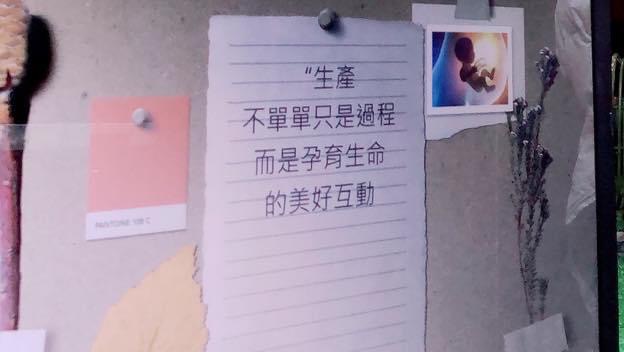 “生產
不單單只是過程
而是孕育生命
的美好互動
PANTONE 169 C